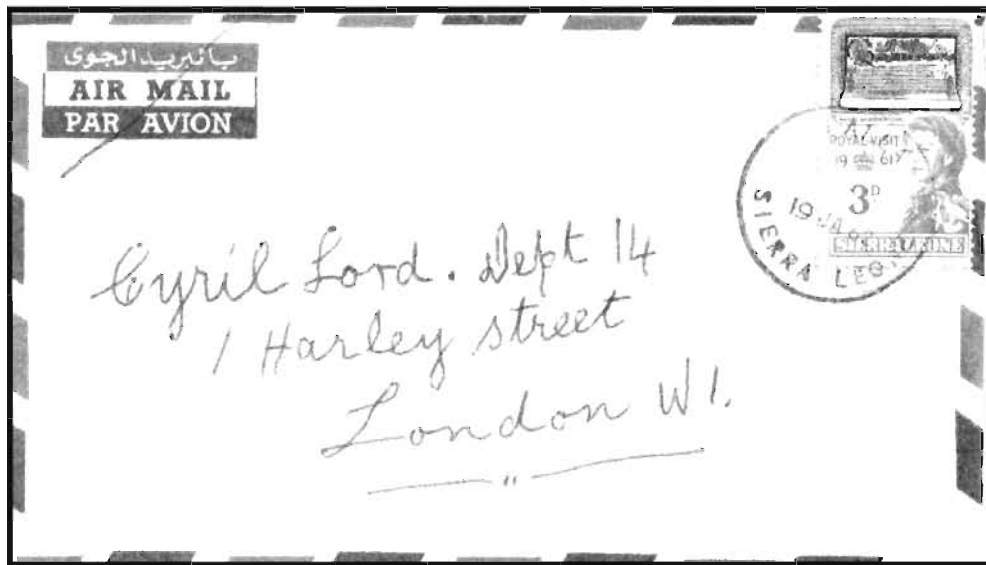 بالبريد الجوى
AIR MAIL
PAR AVION
ROYAL VISIT
19 61
3D
SIERRA LEONE
19 JA
SIERRA LEO
Cyril Lord. Dept 14
1 Harley street
London W1.